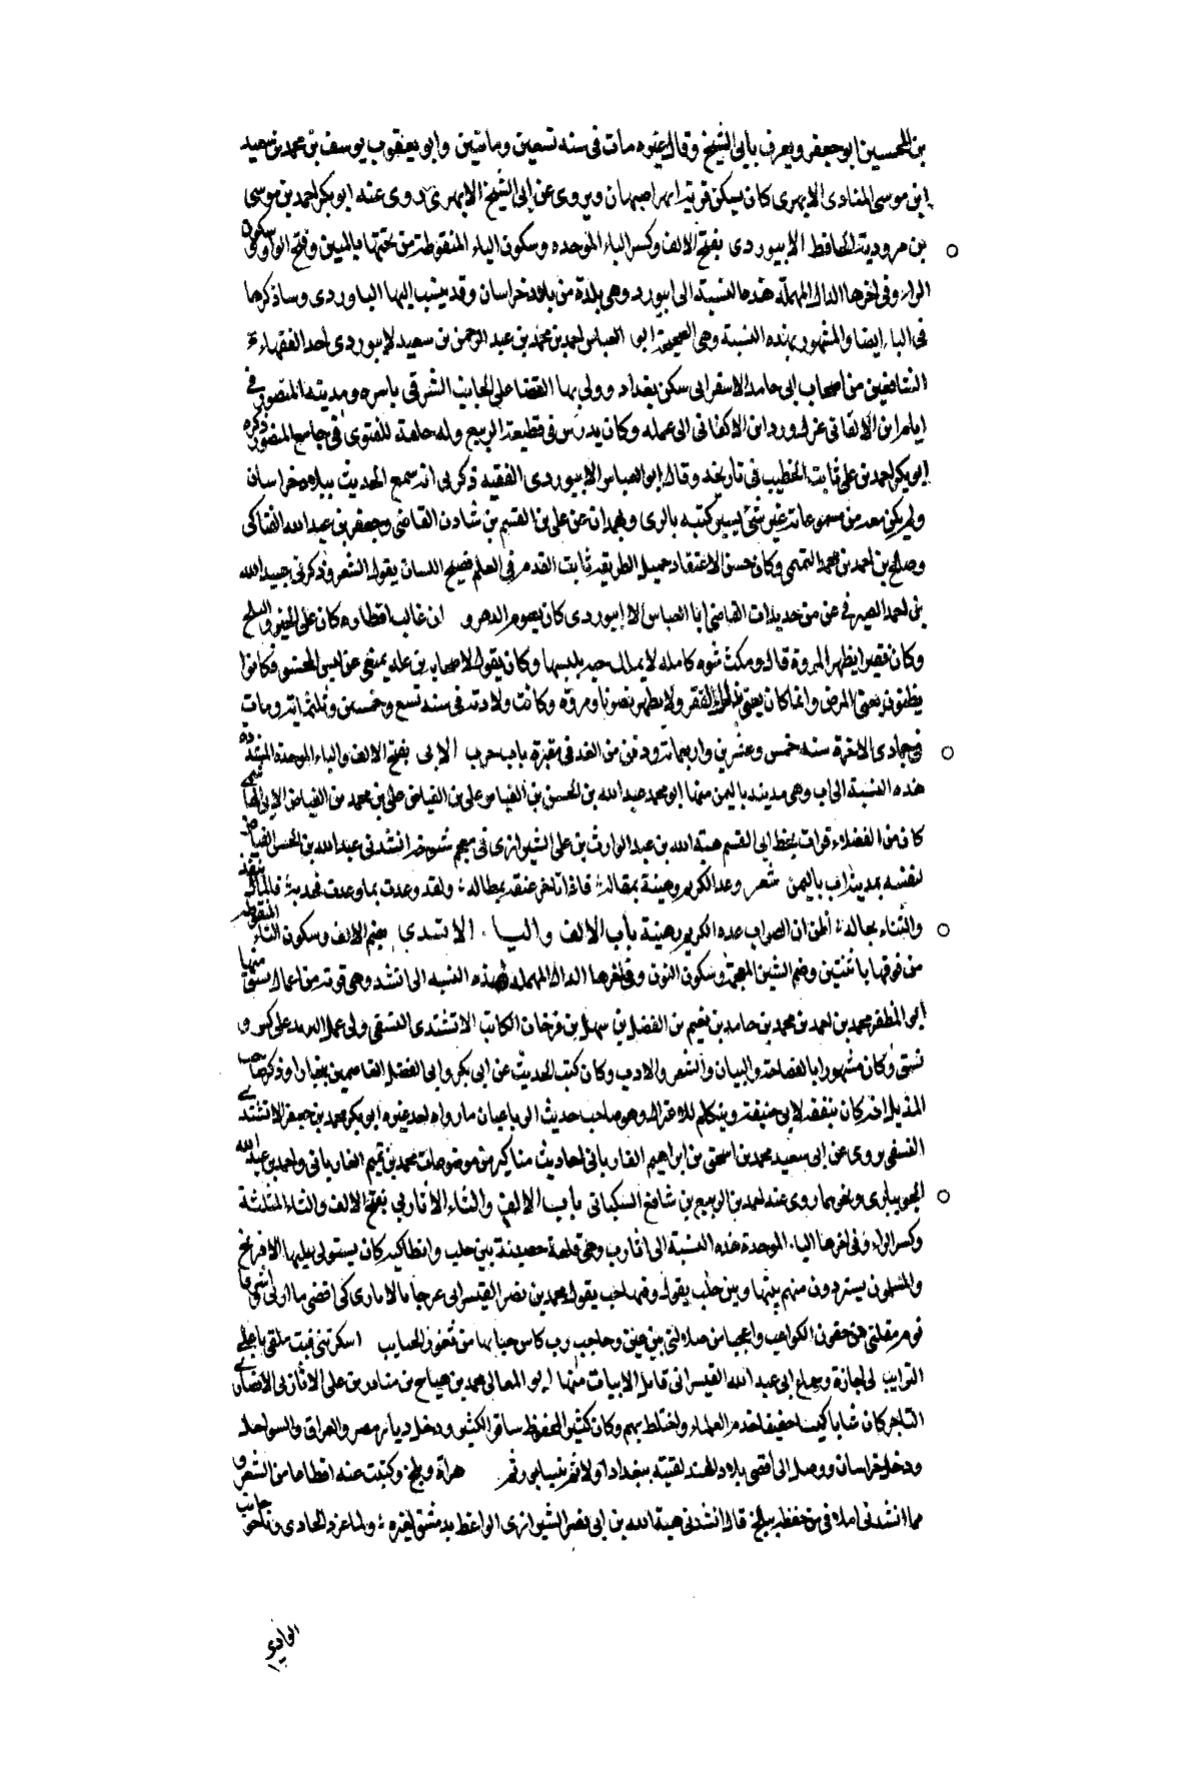 بن الحسين ابو جعفر ويعرف بابى الشيخ وقال غيره مات فى سنه تسعين ومايتين وابو يعقوب يوسف بن محمد بن سعيد
ابن موسى المنادى الابهرى كان يسكن قرية ابهر اصبهان ويروى عن ابى الشيخ الابهرى روى عنه ابو بكر احمد بن موسى
بن مردويه الحافظ الابيوردى بفتح الالف وكسر الباء الموحده وسكون الياء المنقوطة من تحتها باثنين وفتح الواو وسكون
الراء وفى اخرها الدال المهملة هذه النسبة الى ابيورد وهى بلدة من بلاد خراسان وقد ينسب اليها الباوردى وساذكرها
فى الباء ايضا والمشهور بهذه النسبة وهى الصحيحة ابو العباس احمد بن محمد بن عبد الرحمن بن سعيد الابيوردى احد الفقهاء
الشافعيين من اصحاب ابى حامد الاسفراينى سكن بغداد وولى بها القضا على الجانب الشرقى باسره ومدينة المنصور فى
ايام ابن الاكفانى عزل ورد ابن الاكفانى الى عمله وكان يدرس فى قطيعة الربيع وله حلقة للفتوى فى جامع المنصور ذكره
ابو بكر احمد بن على ثابت الخطيب فى تاريخه وقال ابو العباس الابيوردى الفقيه ذكر لى انه سمع الحديث ببلاد خراسان
ولم يكن معه من مسموعاته غير شئ يسير كتبه بالرى وبهمدان عن على بن القسم بن شاذن القاضى وجعفر بن عبد الله الفناكى
وصالح بن احمد بن محمد التميمى وكان حسن الاعتقاد جميل الطريقه ثابت القدم فى العلم فصيح اللسان يقول الشعر وذكر لى عبيد الله
بن احمد الصيرفى عن من حديث ان القاضى ابا العباس الابيوردى كان يصوم الدهر و ان غالب افطاره كان على الخبز والملح
وكان فقيرا يظهر المروة قال ومكث شتوه كامله لا يملك جبه يلبسها وكان يقول لاصحابه بى عله يمنعنى عن لبس المحشو فكانوا
يظنون يعنى المرض وانما كان يعنى بذلك الفقر ولا يظهر تصونا ومروه وكانت ولادته فى سنه تسع وخمسين وثلثمائه ومات
فى جمادى الاخرة سنه خمس وعشرين واربعمائه ودفن من الغد فى مقبرة باب حرب الابى بفتح الالف والباء الموحدة المشدده
هذه النسبة الى اب وهى مدينه باليمن منها ابو محمد عبد الله بن الحسن بن الفياض على بن الفياض على بن محمد بن الفياض الابى
كان من الفضلاء قرات بخط ابى القسم هبة الله بن عبد الوارث بن على الشيرازى فى معجم شيوخه انشدنى عبد الله بن الحسن الفياض
لنفسه بمدينة اب باليمن شعر وعد الكريم رهينة بمقاله فاذا تاخر عنقه بمطاله ولقد وعدت بما وعدت فجد به فالمال
والثناء بحاله اظن ان الصواب عده الكريم رهينة باب الالف والتا الاتشندى بضم الالف وسكون التاء المنقوطه
من فوقها باثنتين وضم الشين المعجمة وسكون النون وفى اخرها الدال المهمله هذه النسبه الى اتشند وهى قرية من اعمال نسف منها
ابو المظفر محمد بن احمد بن محمد بن حامد بن نعيم بن الفضل بن سهل بن فرخان الكاتب الاتشندى النسفى ولى عمل البريد على كس و
نسف وكان مشهورا بالفصاحة والبيان والشعر والادب وكان كتب الحديث عن ابى بكر وابى الفضل القاسم بن بنيار وذكر صاحب
المذيل انه كان يتفقه لابى حنيفة ويتكلم للاعتزال وهو صاحب حديث الرباعيان مارواه احد غيره ابو بكر محمد بن جعفر الاتشندى
النسفى يروى عن ابى سعيد محمد بن اسحق بن ابراهيم الفاريانى احاديث مناكير من موضوعات محمد بن تميم الفاريانى واحمد بن عبد الله
الجويبارى ونحوهما روى عنه احمد بن الربيع بن شافع السكبانى باب الالف والثاء الاثاربى بفتح الالف والثاء المثلثة
وكسر الراء وفى اخرها الباء الموحدة هذه النسبة الى اثارب وهى قلعة حصينة بين حلب وانطاكيه كان يستولى عليها الافرنج
والمسلمون يستردون منهم بينها وبين حلب يقول محمد بن نصر القيسرانى عرجا بالاثارب كى اقضى مااربى
نوم مقلتى من جفون الكواعب واعجبا من ضلالتى بين عين وحاجب رب كاس حبا بها من ثغور الحبايب اسكرتنى فبت ملقى
الترايب لى اجازة وسماع ابى عبد الله القيسرانى قايل الابيات منها ابو المعالى محمد بن هياج بن مبادر بن على الاثاربى الانصارى
التاجر كان شابا كيسا خفيفا خدم العلماء واختلط بهم وكان كثير المحفوظ سافر الكثير ودخل ديار مصر والعراق والسواحل
ودخل خراسان ووصل الى اقصى بلاد الهند لقيته ببغداد اولا ثم بنيسابور ثم هراة وبلخ وكتبت عنه اقطاعا من الشعر و
مما انشدنى املاء من حفظه ببلخ قال انشدنى هبة الله بن ابى نصر الشيرازى الواعظ بدمشق لغيره ولما غرد الحادى وناحو جانب
الوادى